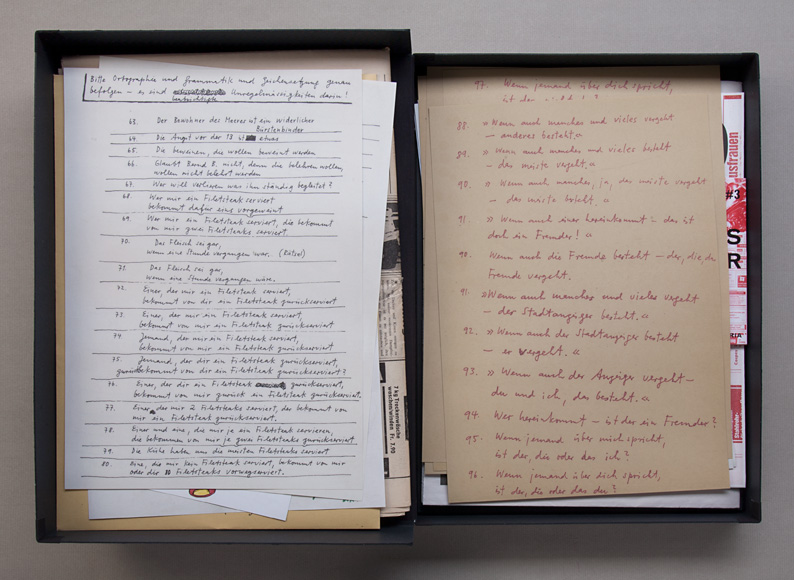 Bitte Ortographie und Grammatik und Zeichensetzung genau
befolgen – es sind beabsichtigte Unregelmässigkeiten darin!
63. Der Bewohner des Meeres ist ein widerlicher
Bürstenbinder
64. Die Angst vor der 13 ist etwas
65. Die beweinen, die wollen beweint werden
66. Glaubt Bernd B. nicht, denn die belehren wollen,
wollen nicht belehrt werden
67. Wer will verlieren was ihn ständig begleitet?
68. Wer mir ein Filetsteak serviert
bekommt dafür eins vorgeweint
69. Wer mir ein Filetsteak serviert, die bekommt
von mir zwei Filetsteaks serviert
70. Das Fleisch sei gar,
wenn eine Stunde vergangen war. (Rätsel)
71. Das Fleisch sei gar,
wenn eine Stunde vergangen wäre.
72. Einer, der mir ein Filetsteak serviert,
bekommt von dir ein Filetsteak zurückserviert
73. Einer, der mir ein Filetsteak serviert,
bekommt von mir ein Filetsteak zurückserviert
74. Jemand, der mir ein Filetsteak serviert,
bekommt von mir ein Filetsteak zurückserviert
75. Jemand, der dir ein Filetsteak zurückserviert,
bekommt von dir ein Filetsteak zurückserviert?
76. Einer, der dir ein Filetsteak zurückserviert,
bekommt von mir zurück ein Filetsteak zurückserviert.
77. Einer der mir 2 Filetsteaks serviert, der bekommt von
mir ein Filetsteak zurückserviert.
78. Einer und eine, die mir je ein Filetsteak servieren,
die bekommen von mir je zwei Filetsteaks zurückserviert
79. Die Kühe haben uns die meisten Filetsteaks serviert
80. Eine, die mir kein Filetsteak serviert, bekommt von mir
oder dir Filetsteaks vorwegserviert.
7 kg Trockenwäsche
waschen/winden Fr. 7.90
97. Wenn jemand über dich spricht,
ist der
88. »Wenn auch manches und vieles vergeht
– anderes besteht.«
89. »Wenn auch manches und vieles besteht
– das meiste vergeht.«
90. »Wenn auch manches, ja, das meiste vergeht
– das meiste bleibt.«
91. »Wenn auch einer hereinkommt – das ist
doch ein Fremder!«
90. Wenn auch die Fremde besteht – der, die, das
Fremde vergeht.
91. »Wenn auch manches und vieles vergeht
– der Stadtanzüger besteht.«
92. »Wenn auch der Stadtanzüger besteht
– er vergeht.«
93. »Wenn auch der Anzüger vergeht –
du und ich, das besteht.«
94. Wer hereinkommt – ist der ein Fremder?
95. Wenn jemand über mich spricht,
ist der, die oder das ich?
96. Wenn jemand über dich spricht,
ist der, die oder das du?
usfrauen
#3
S
R